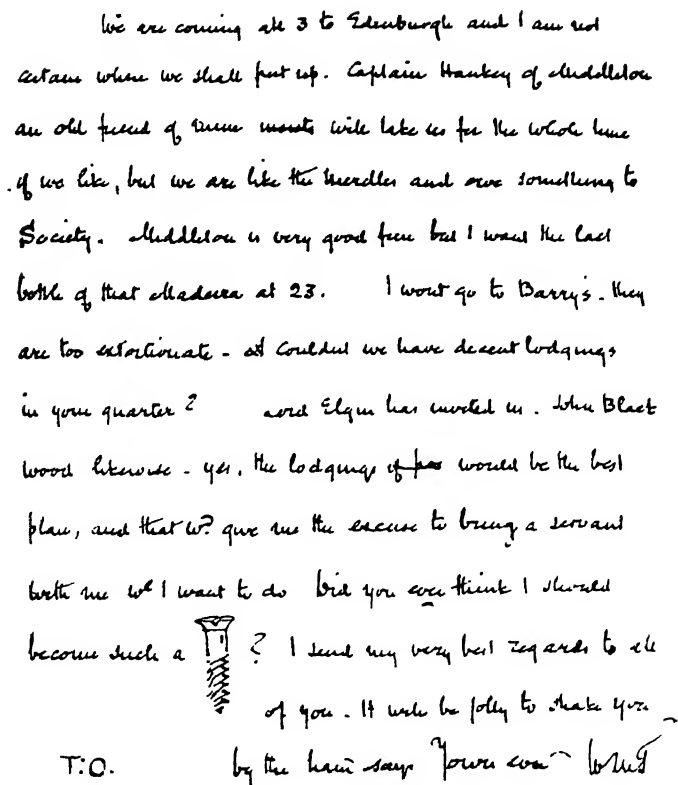 We are coming all 3 to Edinburgh and I am not
certain where we shall put up. Captain Hankey of Middleton
an old friend of mine will take us for the whole time
if we like, but we are like the Merdles and owe something to
Society. Middleton is very good fun but I want the last
bottle of that Madeira at 23. I wont go to Barry's - they
are too extortionate - Couldnt we have decent lodgings
in your quarter? Lord Elgin has invited us. John Black
wood likewise - yes, the lodgings would be the best
plan, and that wd. give me the excuse to bring a servant
with me wh I want to do Did you ever think I should
become such a ? I send my very best regards to all
of you. It will be jolly to shake you
T:O. by the hand says Yours ever WMT